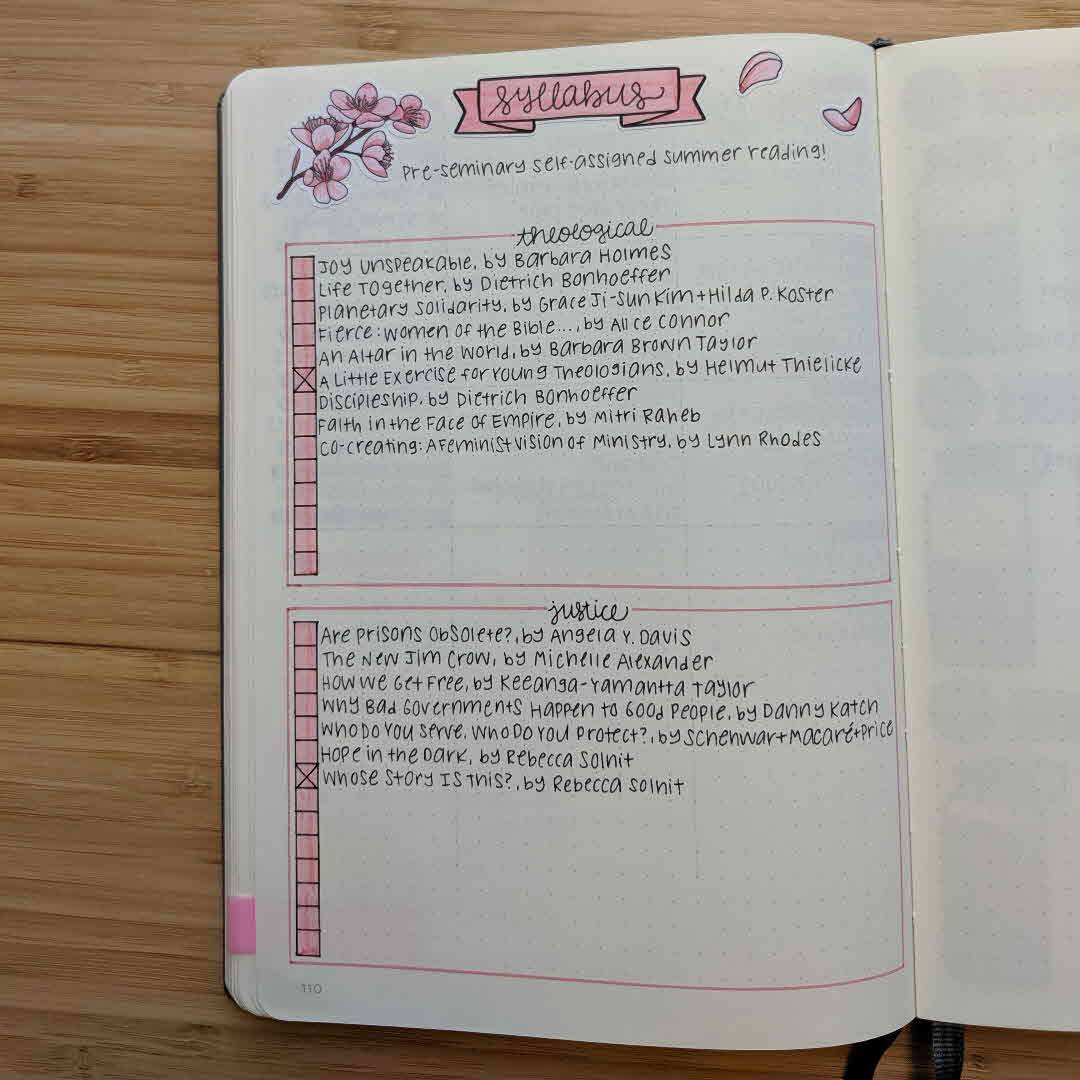 syllabus
Pre-seminary self-assigned summer reading!
theological
Joy Unspeakable, by Barbara Holmes
Life Together, by Dietrich Bonhoeffer
Planetary Solidarity, by Grace Ji-Sun Kim + Hilda P. Koster
Fierce: Women of the Bible..., by Alice Connor
An Altar in the World, by Barbara Brown Taylor
A Little Exercise for Young Theologians, by Helmut Thielicke
Discipleship, by Dietrich Bonhoeffer
Faith in the Face of Empire, by Mitri Raheb
Co-creating: A Feminist Vision of Ministry, by Lynn Rhodes
justice
Are Prisons Obsolete?, by Angela Y. Davis
The New Jim Crow, by Michelle Alexander
How We Get Free, by Keeanga-Yamahtta Taylor
Why Bad Governments Happen to Good People, by Danny Katch
Who Do You Serve, Who Do You Protect?, by Schenwar + Macaré + Price
Hope in the Dark, by Rebecca Solnit
Whose Story Is This?, by Rebecca Solnit
110